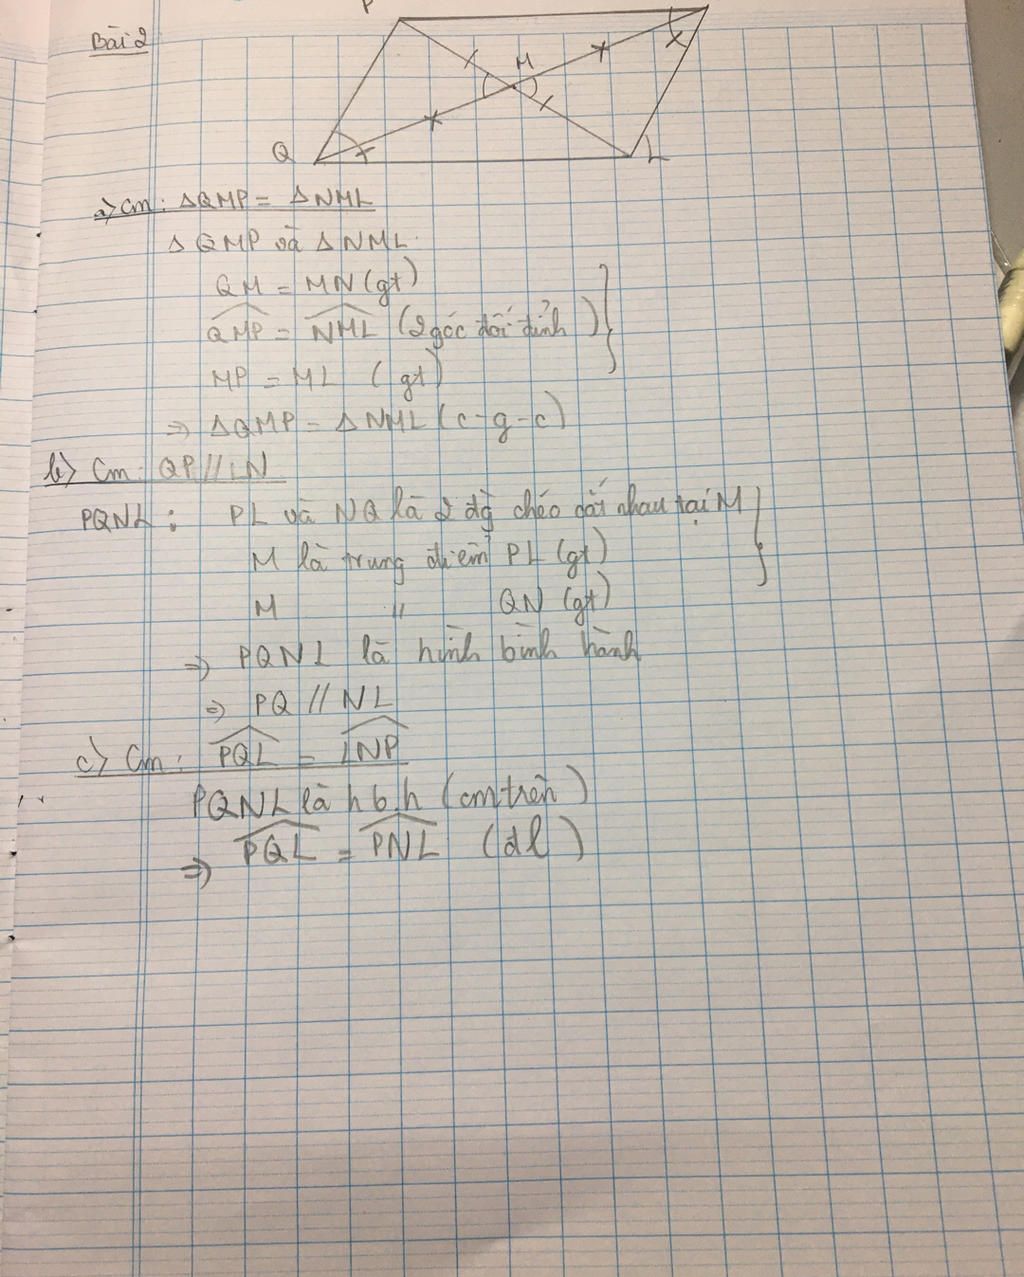 P
Bài 2
M
Q
L
a) Cm: ΔQMP = ΔNML
Δ QMP và Δ NML
QM = MN (gt)
QMP = NML (2 góc đối đỉnh)
MP = ML (gt)
⇒ ΔQMP = ΔNML (c-g-c)
b) Cm: QP // LN
PQNL: PL và NQ là 2 đg chéo cắt nhau tại M
M là trung điểm PL (gt)
M " QN (gt)
⇒ PQNL là hình bình hành
⇒ PQ // NL
c) Cm: PQL = LNP
PQNL là hbh (cm trên)
⇒ PQL = PNL (đl)